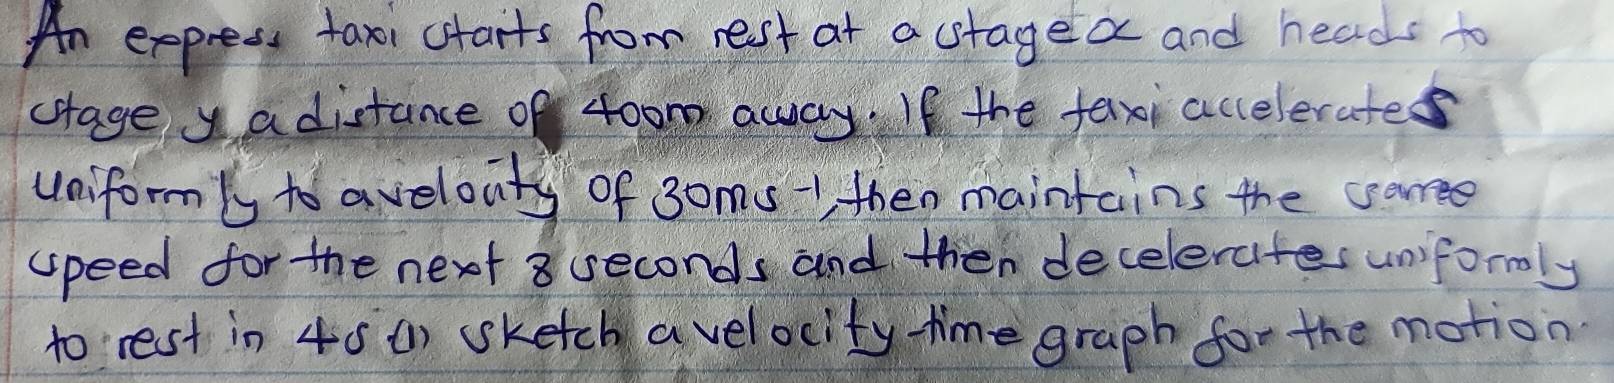 An express taxi starts from rest at a stage x and heads to
stage y a distance of 400m away. If the taxi accelerates
uniformly to a velocity of 30ms-1, then maintains the same
speed for the next 8 seconds and then decelerates uniformly
to rest in 4s (i) sketch a velocity-time graph for the motion.